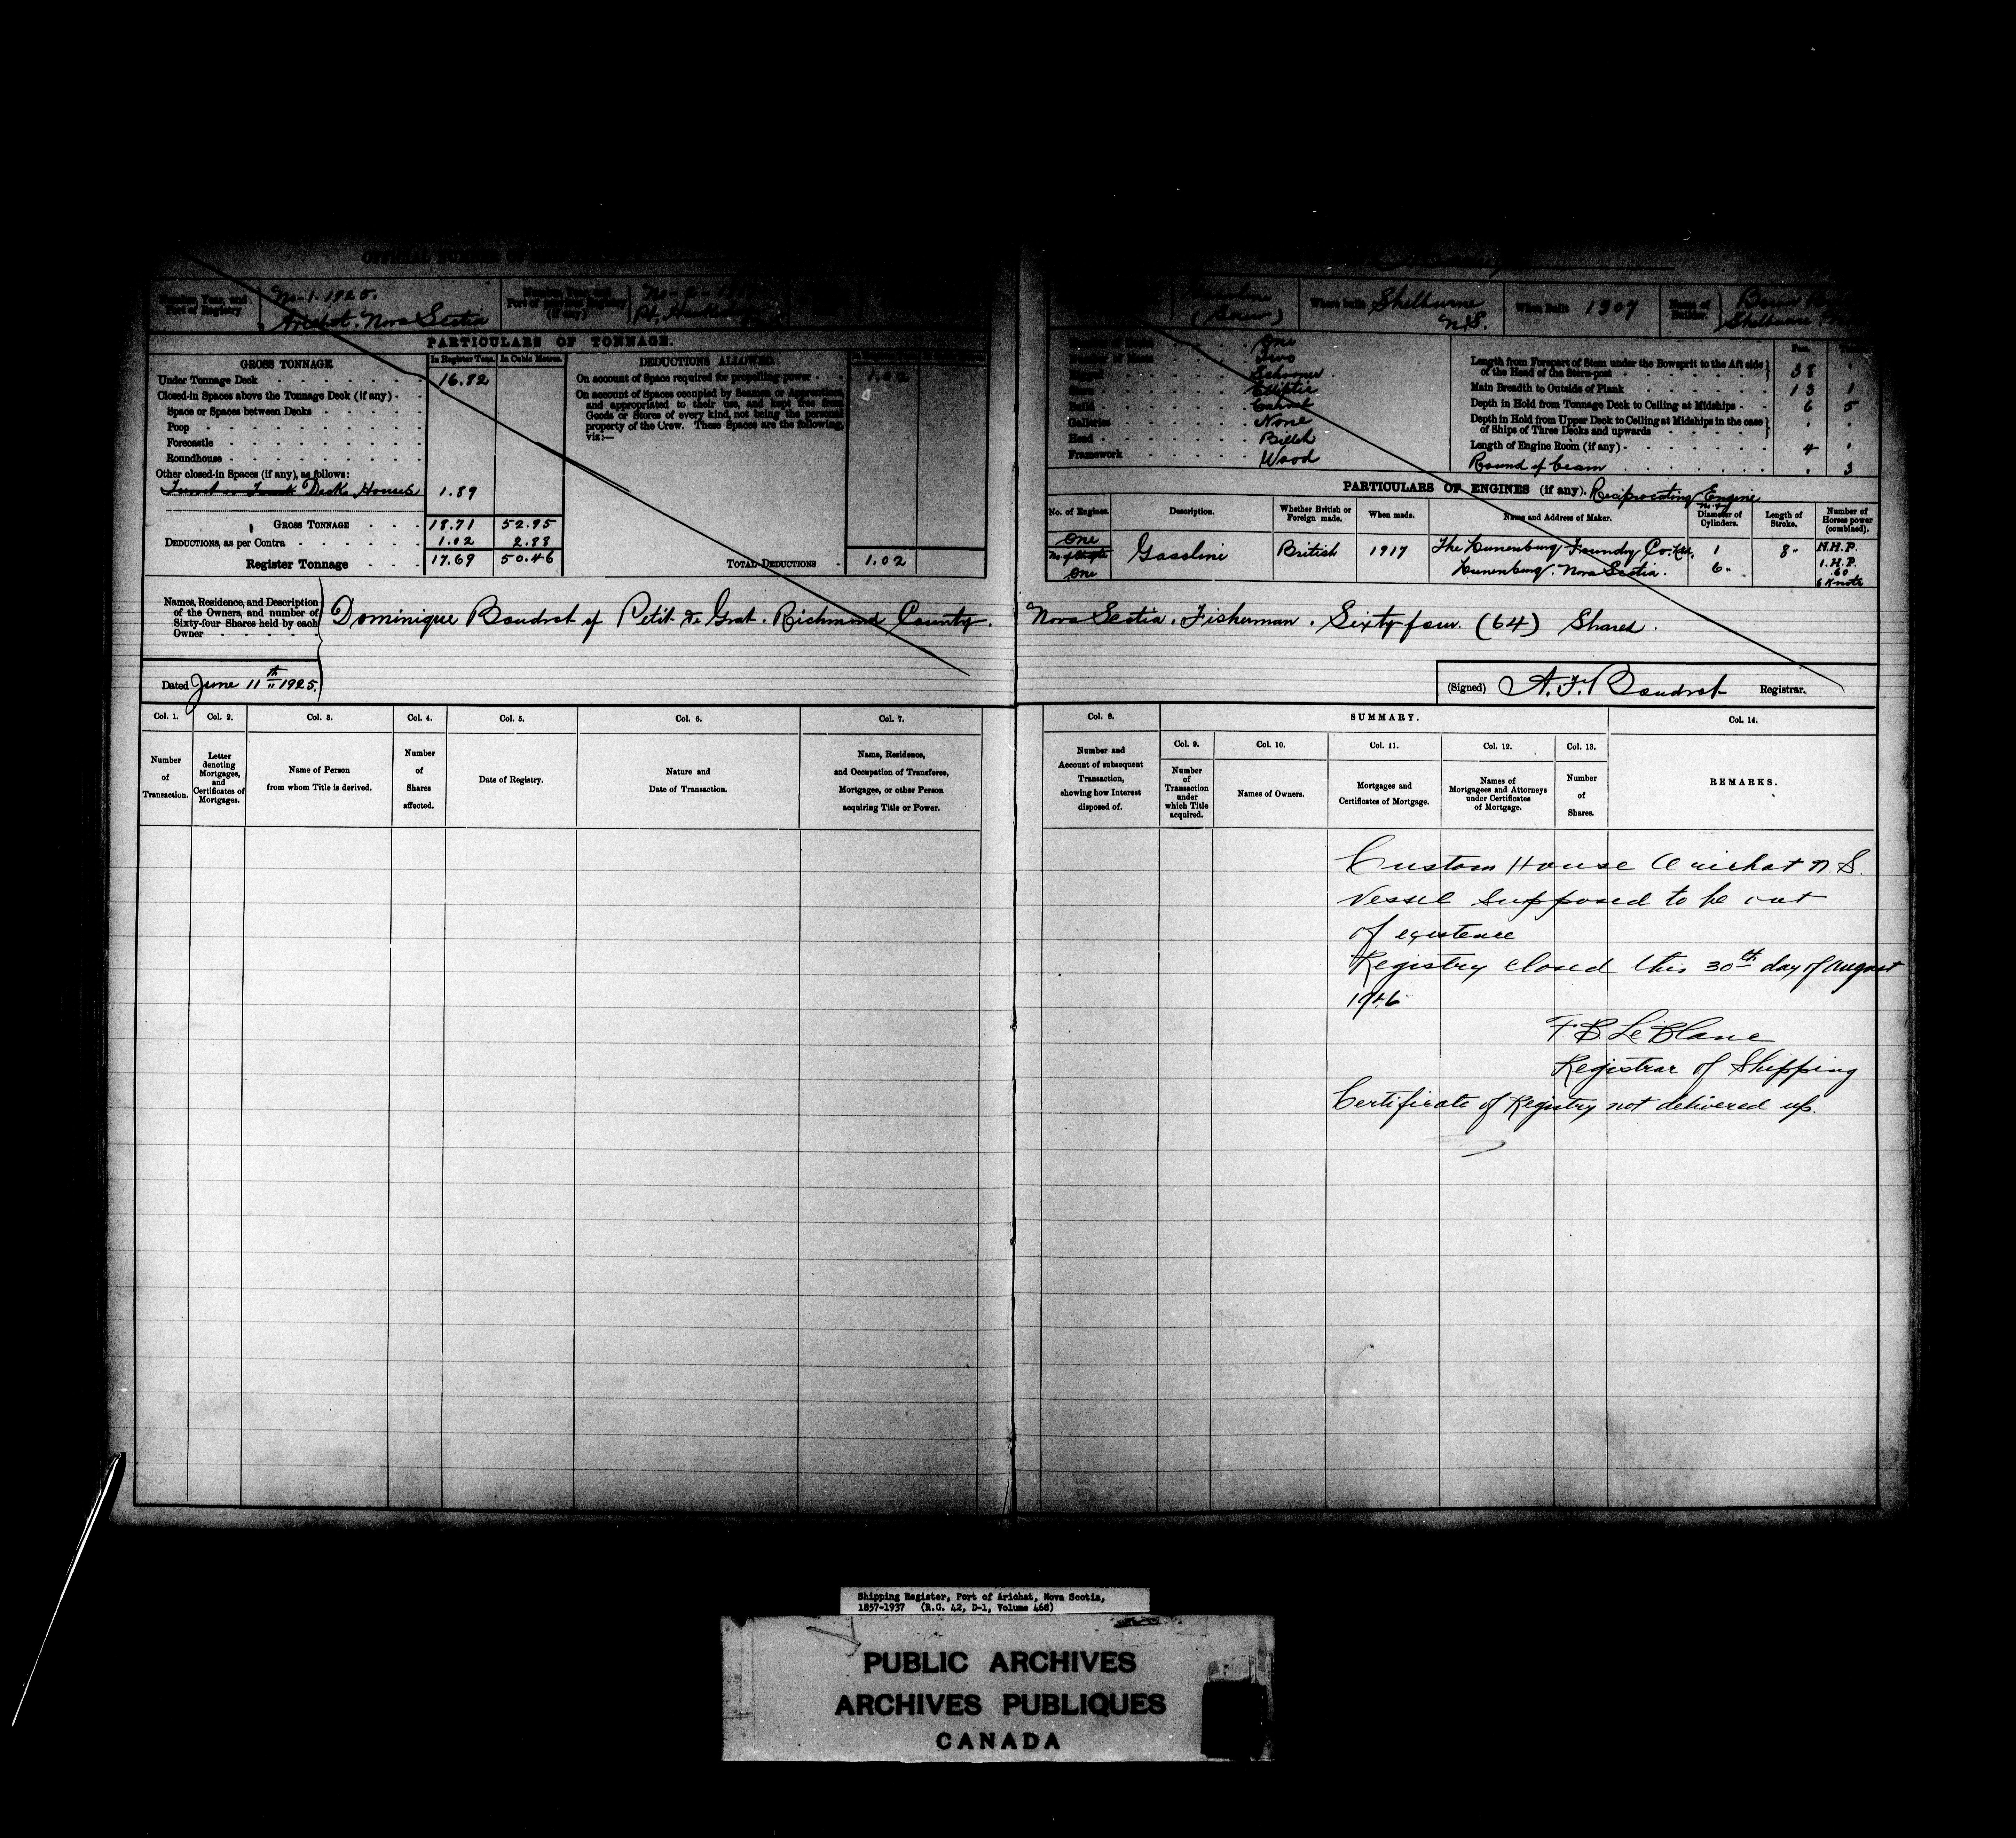 OFFICIAL NUMBER OF
Number, Year, and Port of Registry No. 1. 1925. Arichat. Nova Scotia
Number, Year, and Port of previous Registry (if any)
(Screw)
Where built Shelburne N.S.
When Built 1907
Name of Builder Shelburne
PARTICULARS OF TONNAGE.
GROSS TONNAGE. In Register Tons. In Cubic Metres.
Under Tonnage Deck 16.82
Closed-in Spaces above the Tonnage Deck (if any)
Space or Spaces between Decks
Poop
Forecastle
Roundhouse
Other closed-in Spaces (if any), as follows:
Deck Houses 1.89
GROSS TONNAGE 18.71 52.95
DEDUCTIONS, as per Contra 1.02 2.88
Register Tonnage 17.69 50.46
DEDUCTIONS ALLOWED.
On account of Space required for propelling power 1.02
On account of Spaces occupied by Seamen or Apprentices,
and appropriated to their use, and kept free from
Goods or Stores of every kind, not being the personal
property of the Crew. These Spaces are the following,
viz:—
TOTAL DEDUCTIONS 1.02
One
Two
Schooner
Elliptic
Build Carvel
Galleries None
Head Billet
Framework Wood
Feet.
Length from Forepart of Stem under the Bowsprit to the Aft side of the Head of the Stern-post 38
Main Breadth to Outside of Plank 13 1
Depth in Hold from Tonnage Deck to Ceiling at Midships 6 5
Depth in Hold from Upper Deck to Ceiling at Midships in the case of Ships of Three Decks and upwards
Length of Engine Room (if any) 4
Round of beam 3
PARTICULARS OF ENGINES (if any). Reciprocating Engine
No. of Engines. Description. Whether British or Foreign made. When made. Name and Address of Maker. No. of Diameter of Cylinders. Length of Stroke. Number of Horses power (combined).
One Gasoline British 1917 The Lunenburg Foundry Co. Ltd. 1 8" N.H.P.
One Lunenburg. Nova Scotia. 6" I.H.P.
.60
6 Knots
Names, Residence, and Description of the Owners, and number of Sixty-four Shares held by each Owner
Dominique Boudrot of Petit de Grat. Richmond County. Nova Scotia. Fisherman. Sixty four. (64) Shares.
Dated June 11th 1925.
(Signed) A. F. Boudrot Registrar.
Col. 1. Col. 2. Col. 3. Col. 4. Col. 5. Col. 6. Col. 7. Col. 8. SUMMARY. Col. 14.
Col. 9. Col. 10. Col. 11. Col. 12. Col. 13.
Number of Transaction.
Letter denoting Mortgages, and Certificates of Mortgages.
Name of Person from whom Title is derived.
Number of Shares affected.
Date of Registry.
Nature and Date of Transaction.
Name, Residence, and Occupation of Transferee, Mortgagee, or other Person acquiring Title or Power.
Number and Account of subsequent Transaction, showing how Interest disposed of.
Number of Transaction under which Title acquired.
Names of Owners.
Mortgages and Certificates of Mortgage.
Names of Mortgagees and Attorneys under Certificates of Mortgage.
Number of Shares.
REMARKS.
Custom House Arichat N.S.
Vessel supposed to be out
of existence
Registry closed this 30th day of August
1946
F. B. Le Blanc
Registrar of Shipping
Certificate of Registry not delivered up.
Shipping Register, Port of Arichat, Nova Scotia,
1857-1937 (R.G. 42, D-1, Volume 468)
PUBLIC ARCHIVES
ARCHIVES PUBLIQUES
CANADA